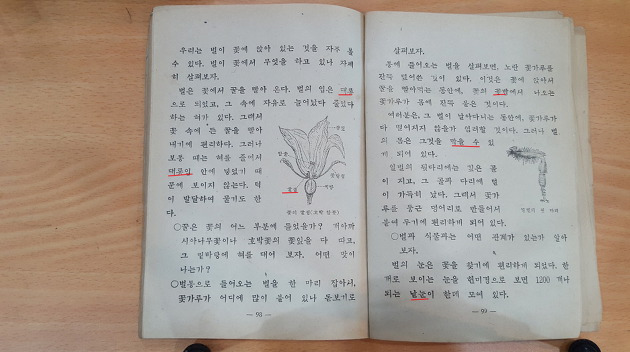 우리는 벌이 꽃에 앉아 있는 것을 자주 볼
수 있다. 벌이 꽃에서 무엇을 하고 있나 자세
히 살펴보자.
벌은 꽃에서 꿀을 빨아 온다. 벌의 입은 대롱
으로 되었고, 그 속에 자유로 늘어났다 줄었다
하는 혀가 있다. 그래서
꽃 속에 든 꿀을 빨아
내기에 편리하다. 그러나
보통 때는 혀를 줄여서
대롱의 안에 넣었기 때
문에 보이지 않는다. 턱
이 발달하여 물기도 한
다.
꽃잎
암술
꽃받침
꿀샘
씨방
○꿀은 꽃의 어느 부분에 들었을가?
시아나무꽃이나 호박꽃의 꽃잎을 다 떼고,
그 밑바닥에 혀를 대어 보자. 어떤 맛이
나는가?
○벌통으로 들어오는 벌을 한 마리 잡아서,
꽃가루가 어디에 많이 붙어 있나 돋보기로
— 98 —
살펴보자.
통에 들어오는 벌을 살펴보면, 노란 꽃가루를
잔뜩 묻어온 것이 있다. 이것은 꽃에 앉아서
꿀을 빨아먹는 동안에, 꽃의 꽃밥에서 나오는
꽃가루가 몸에 잔뜩 붙은 것이다.
여러분은, 그 벌이 날아다니는 동안에, 꽃가루가
다 떨어지지 않을가 염려할 것이다. 그러나 벌
의 몸은 그것을 막을 수 있
게 되어 있다.
일벌의 뒷다리에는 깊은 홈
이 지고, 그 골짜 다리에 털
이 가득히 났다. 그래서 꽃가
루를 둥근 덩어리로 만들어서
붙여 두기에 편리하게 되어 있다.
○벌과 식물과는 어떤 관계가 있는가 알아
보자.
벌의 눈은 꽃을 찾기에 편리하게 되었다. 한
개로 보이는 눈을 현미경으로 보면 1200 개나
되는 낱눈이 한데 모여 있다.
— 99 —